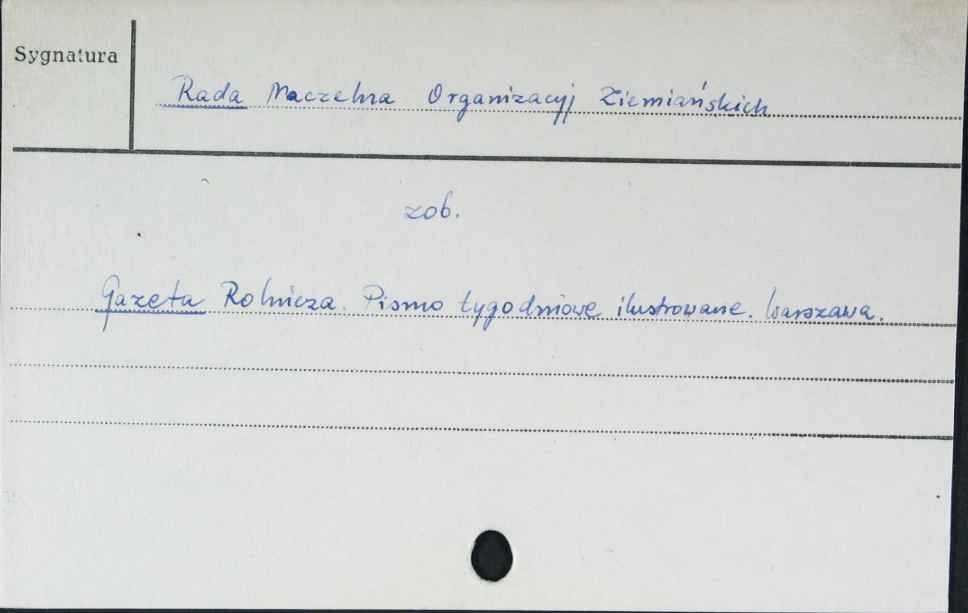 Sygnatura
Rada Naczelna Organizacyj Ziemiańskich
zob.
Gazeta Rolnicza. Pismo tygodniowe ilustrowane. Warszawa.